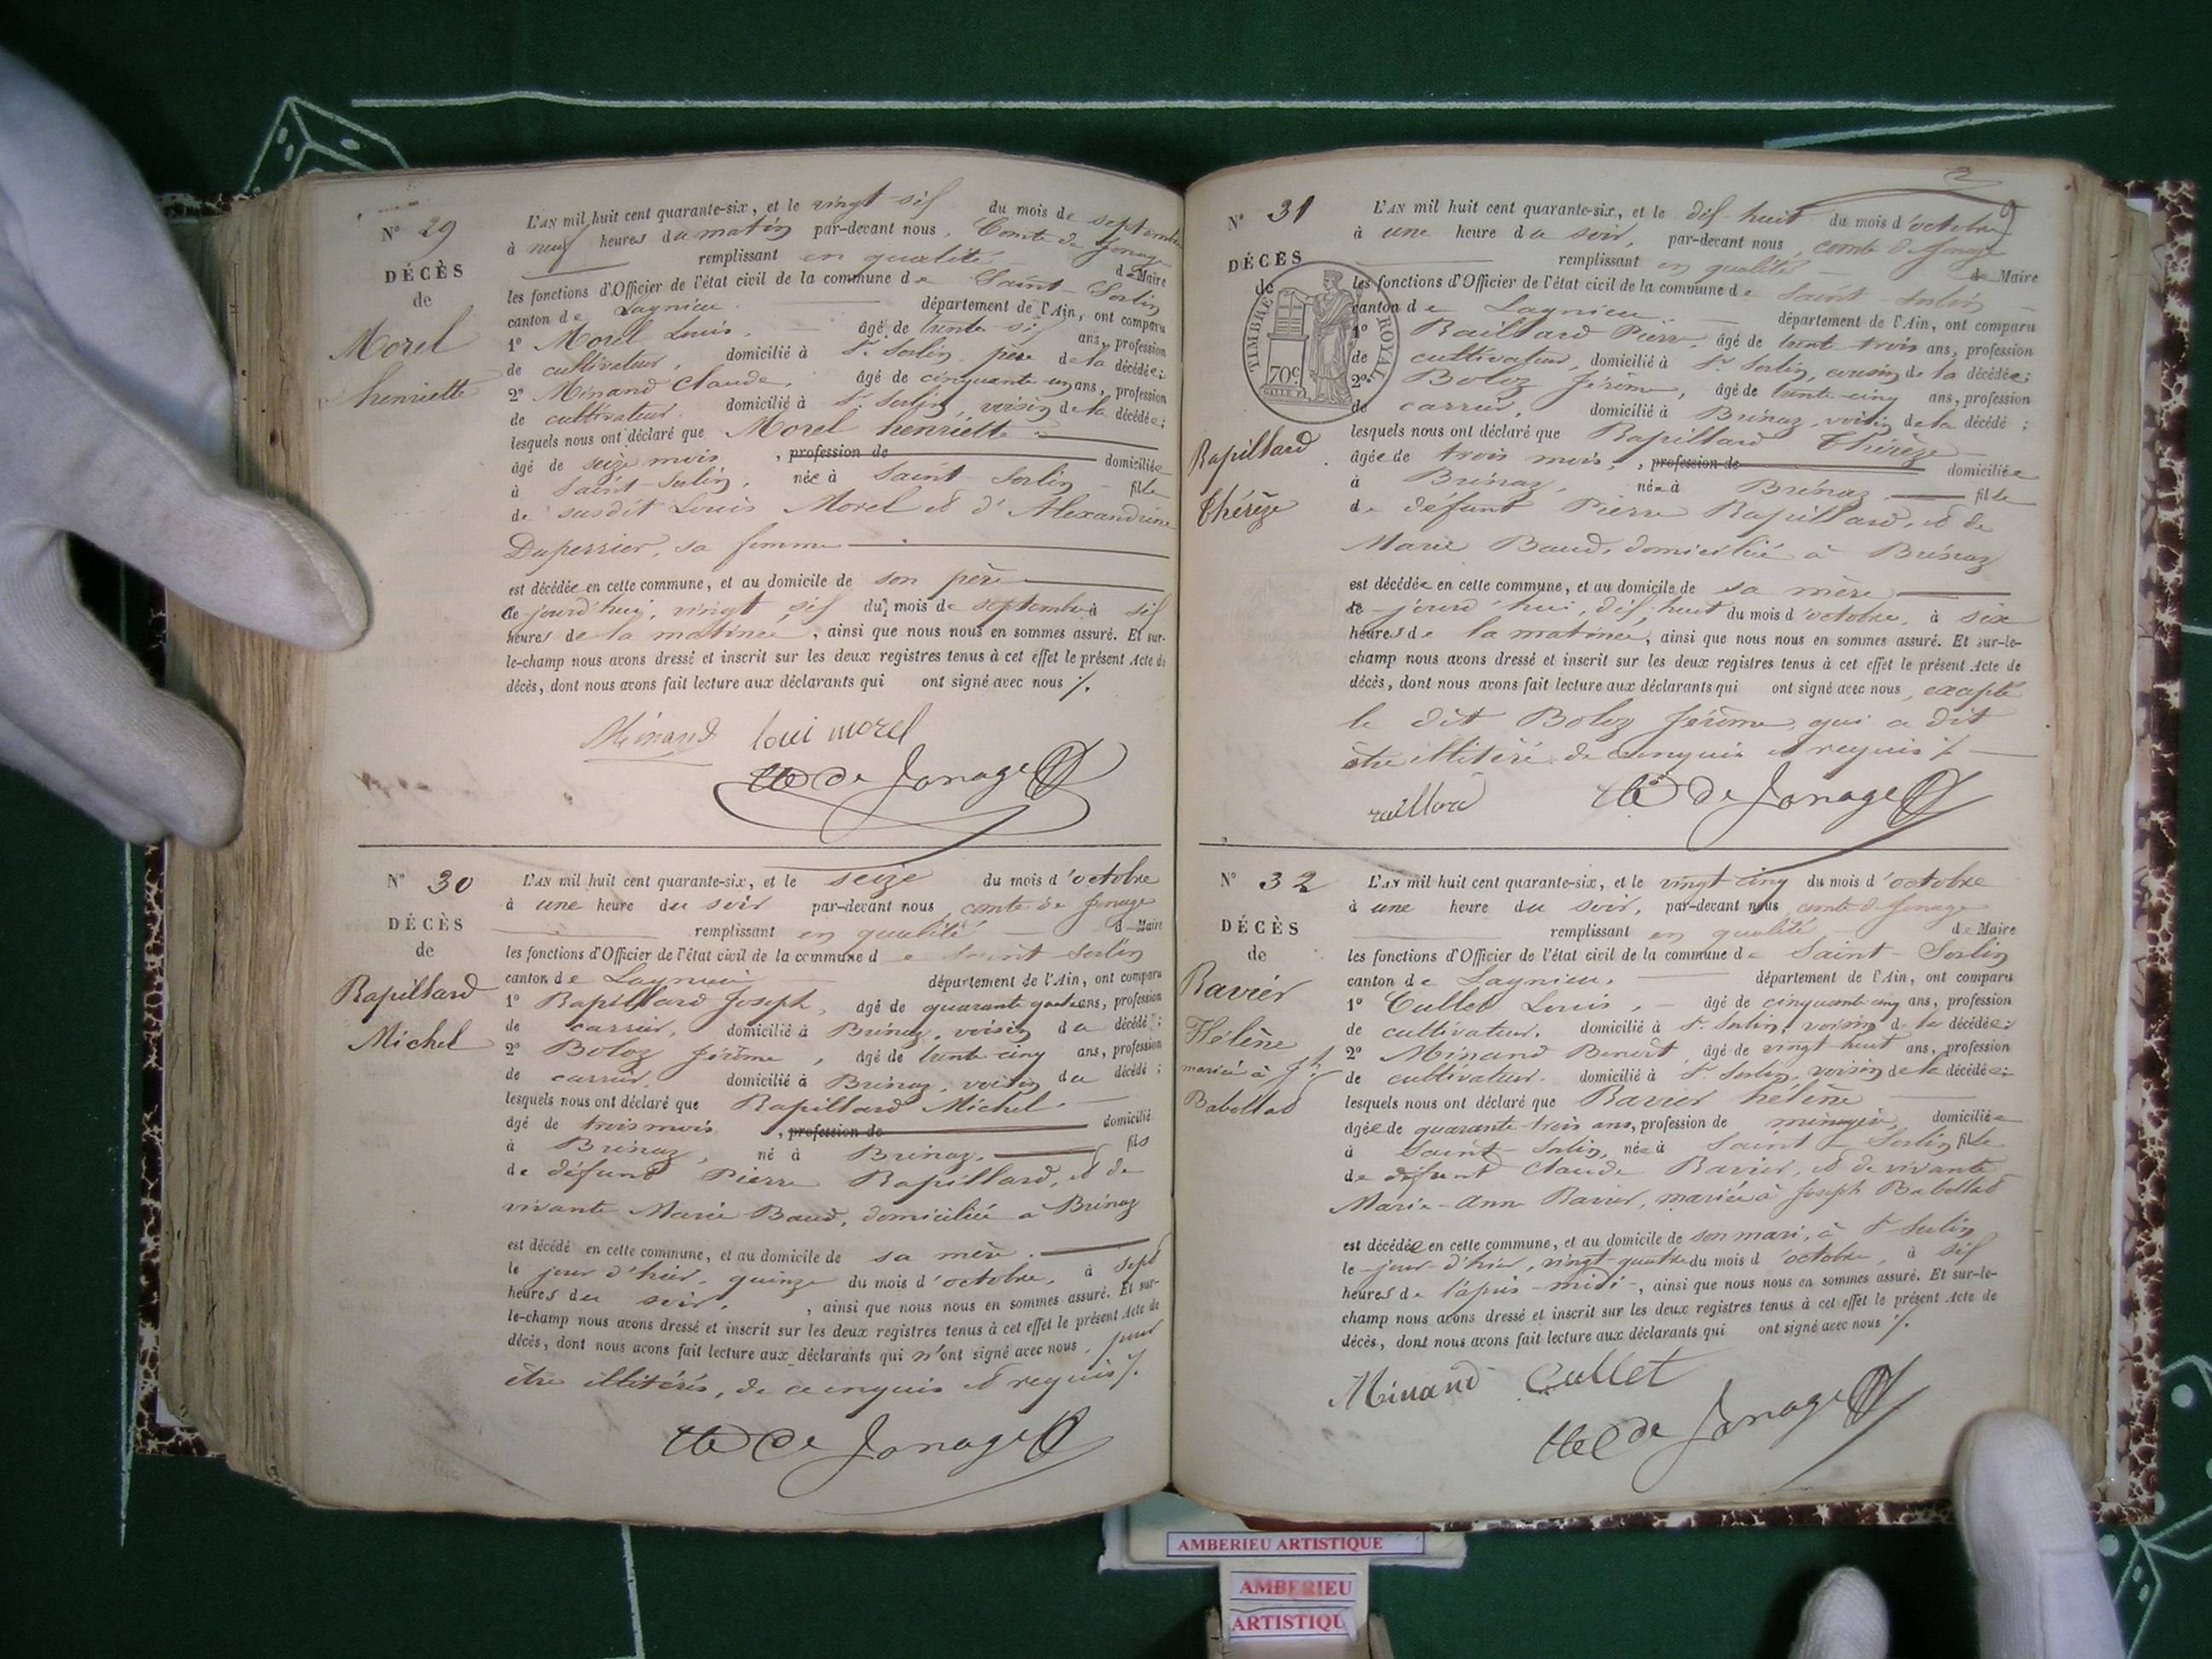 N° 29
DÉCÈS
de
Morel
henriette
L'AN mil huit cent quarante-six, et le vingt-six du mois de septembre
à neuf heures du matin par-devant nous, Comte de Jonage
remplissant en qualité de Maire
les fonctions d'Officier de l'état civil de la commune de Saint-Sorlin
canton de Lagnieu département de l'Ain, ont comparu
1° Morel Louis, âgé de trente six ans, profession
de cultivateur, domicilié à St. Sorlin, père de la décédée;
2° Minand Claude, âgé de cinquante un ans, profession
de cultivateur. domicilié à St. Sorlin, voisin de la décédée;
lesquels nous ont déclaré que Morel henriette
âgé de seize mois, profession de domiciliée
à Saint-Sorlin, née à Saint-Sorlin fille
de susdit Louis Morel et d'Alexandrine
Duperrier, sa femme
est décédée en cette commune, et au domicile de son père
ce jourd'hui, vingt six du mois de septembre à six
heures de la matinée, ainsi que nous nous en sommes assuré. Et sur-
le-champ nous avons dressé et inscrit sur les deux registres tenus à cet effet le présent Acte de
décès, dont nous avons fait lecture aux déclarants qui ont signé avec nous ⁒.
Minand loui morel
Cte de Jonage
N° 30
DÉCÈS
de
Rapillard
Michel
L'AN mil huit cent quarante-six, et le seize du mois d'octobre
à une heure du soir par-devant nous, comte de Jonage
remplissant en qualité de Maire
les fonctions d'Officier de l'état civil de la commune de Saint-Sorlin
canton de Lagnieu département de l'Ain, ont comparu
1° Rapillard Joseph, âgé de quarante quatre ans, profession
de carrier, domicilié à Brénaz, voisin du décédé;
2° Boloz Jérôme, âgé de trente cinq ans, profession
de carrier, domicilié à Brénaz, voisin du décédé;
lesquels nous ont déclaré que Rapillard Michel
âgé de trois mois, profession de domicilié
à Brénaz, né à Brénaz, fils
de défunt Pierre Rapillard, et de
vivante Marie Baud, domiciliée à Brénaz
est décédé en cette commune, et au domicile de sa mère.
le jour d'hier, quinze du mois d'octobre, à sept
heures du soir, ainsi que nous nous en sommes assuré. Et sur-
le-champ nous avons dressé et inscrit sur les deux registres tenus à cet effet le présent Acte de
décès, dont nous avons fait lecture aux déclarants qui n'ont signé avec nous, pour
être illitérés, de ce enquis et requis ⁒.
Cte de Jonage
N° 31
DÉCÈS
de
TIMBRE ROYAL
70c.
Rapillard
Thérèze
L'AN mil huit cent quarante-six, et le dix-huit du mois d'octobre
à une heure du soir, par-devant nous, comte de Jonage
remplissant en qualité de Maire
les fonctions d'Officier de l'état civil de la commune de Saint-Sorlin
canton de Lagnieu département de l'Ain, ont comparu
1° Raillard Pierre, âgé de trente-trois ans, profession
de cultivateur, domicilié à St. Sorlin, cousin de la décédée;
2° Boloz Jérôme, âgé de trente-cinq ans, profession
de carrier, domicilié à Brénaz, voisin de la décédé;
lesquels nous ont déclaré que Rapillard Thérèze
âgée de trois mois, profession de domiciliée
à Brénaz, née à Brénaz fille
de défunt Pierre Rapillard, et de
Marie Baud, domiciliée à Brénaz
est décédée en cette commune, et au domicile de sa mère
ce jourd'hui, dix huit du mois d'octobre, à six
heures de la matinée, ainsi que nous nous en sommes assuré. Et sur-le-
champ nous avons dressé et inscrit sur les deux registres tenus à cet effet le présent Acte de
décès, dont nous avons fait lecture aux déclarants qui ont signé avec nous, excepté
le dit Boloz Jérôme, qui a dit
être illitéré, de ce enquis et requis ⁒
raillard Cte de Jonage
N° 32
DÉCÈS
de
Ravier
Hélène
mariée à Jh.
Babollat
L'AN mil huit cent quarante-six, et le vingt cinq du mois d'octobre
à une heure du soir, par-devant nous comte de Jonage
remplissant en qualité de Maire
les fonctions d'Officier de l'état civil de la commune de Saint-Sorlin
canton de Lagnieu, département de l'Ain, ont comparu
1° Cullet Louis, âgé de cinquante cinq ans, profession
de cultivateur, domicilié à St. Sorlin, voisin de la décédée;
2° Minand Benoît, âgé de vingt huit ans, profession
de cultivateur. domicilié à St. Sorlin, voisin de la décédée;
lesquels nous ont déclaré que Ravier hélène
âgée de quarante-trois ans, profession de ménagère, domiciliée
à Saint-Sorlin, née à Saint-Sorlin fille
de défunt Claude Ravier, et de vivante
Marie-Anne Ravier, mariée à Joseph Babollat
est décédée en cette commune, et au domicile de son mari, à St Sorlin
le jour d'hier, vingt-quatre du mois d'octobre, à six
heures de l'après-midi, ainsi que nous nous en sommes assuré. Et sur-le-
champ nous avons dressé et inscrit sur les deux registres tenus à cet effet le présent Acte de
décès, dont nous avons fait lecture aux déclarants qui ont signé avec nous ⁒.
Minand Cullet
Cte de Jonage
AMBERIEU ARTISTIQUE
AMBERIEU
ARTISTIQU